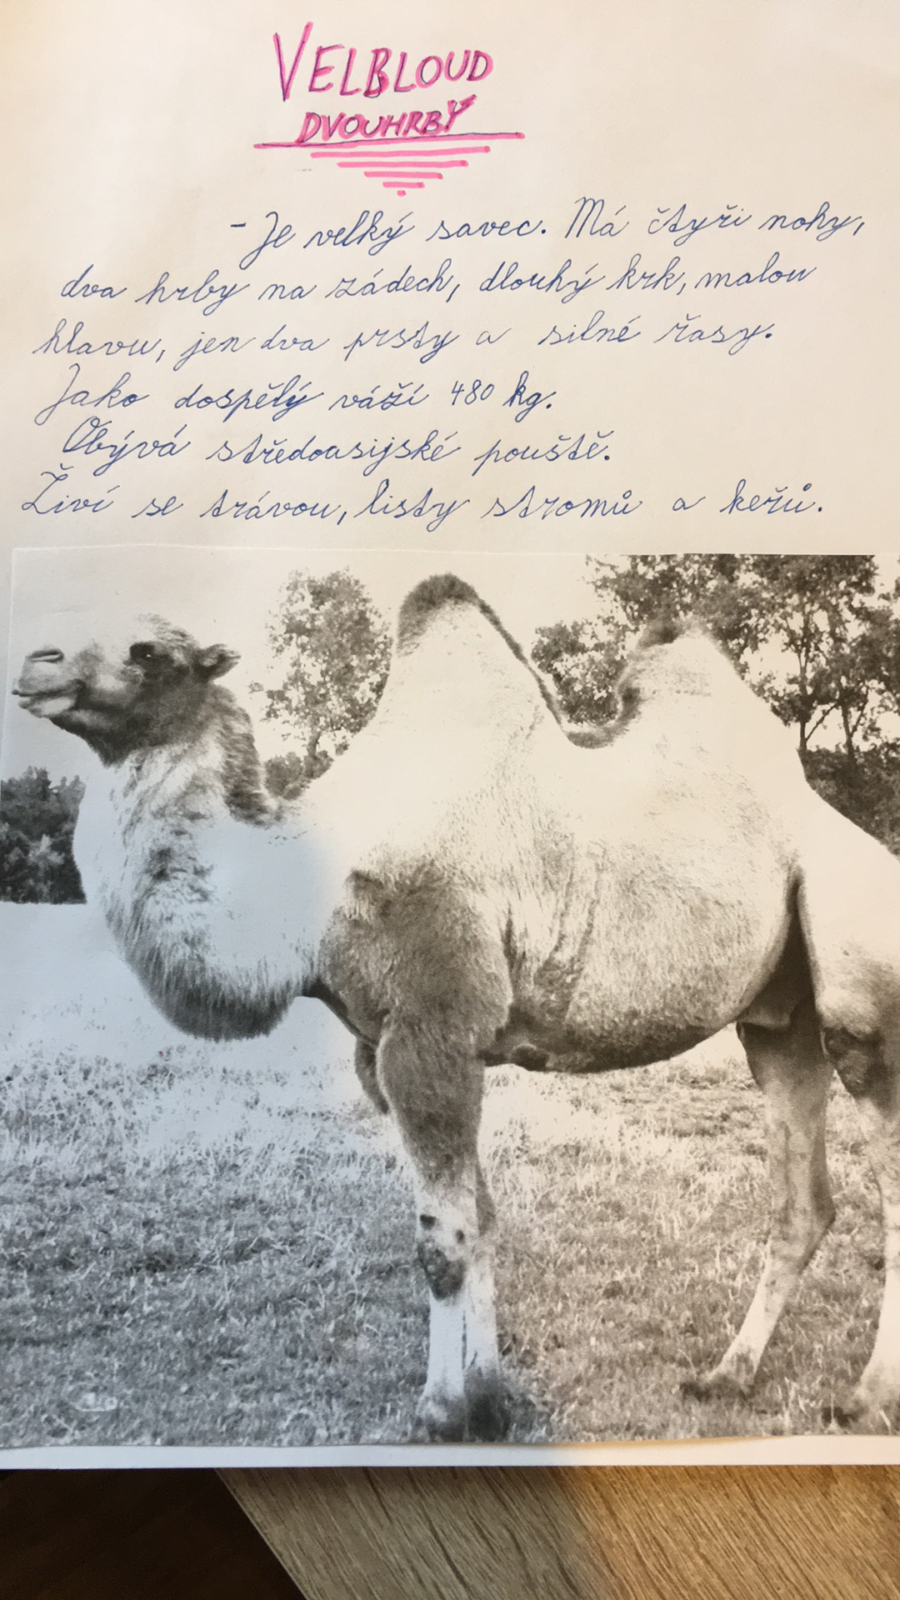 VELBLOUD
DVOUHRBÝ
- Je velký savec. Má čtyři nohy,
dva hrby na zádech, dlouhý krk, malou
hlavu, jen dva prsty a silné řasy.
Jako dospělý váží 480 kg.
Obývá středoasijské pouště.
Živí se trávou, listy stromů a keřů.